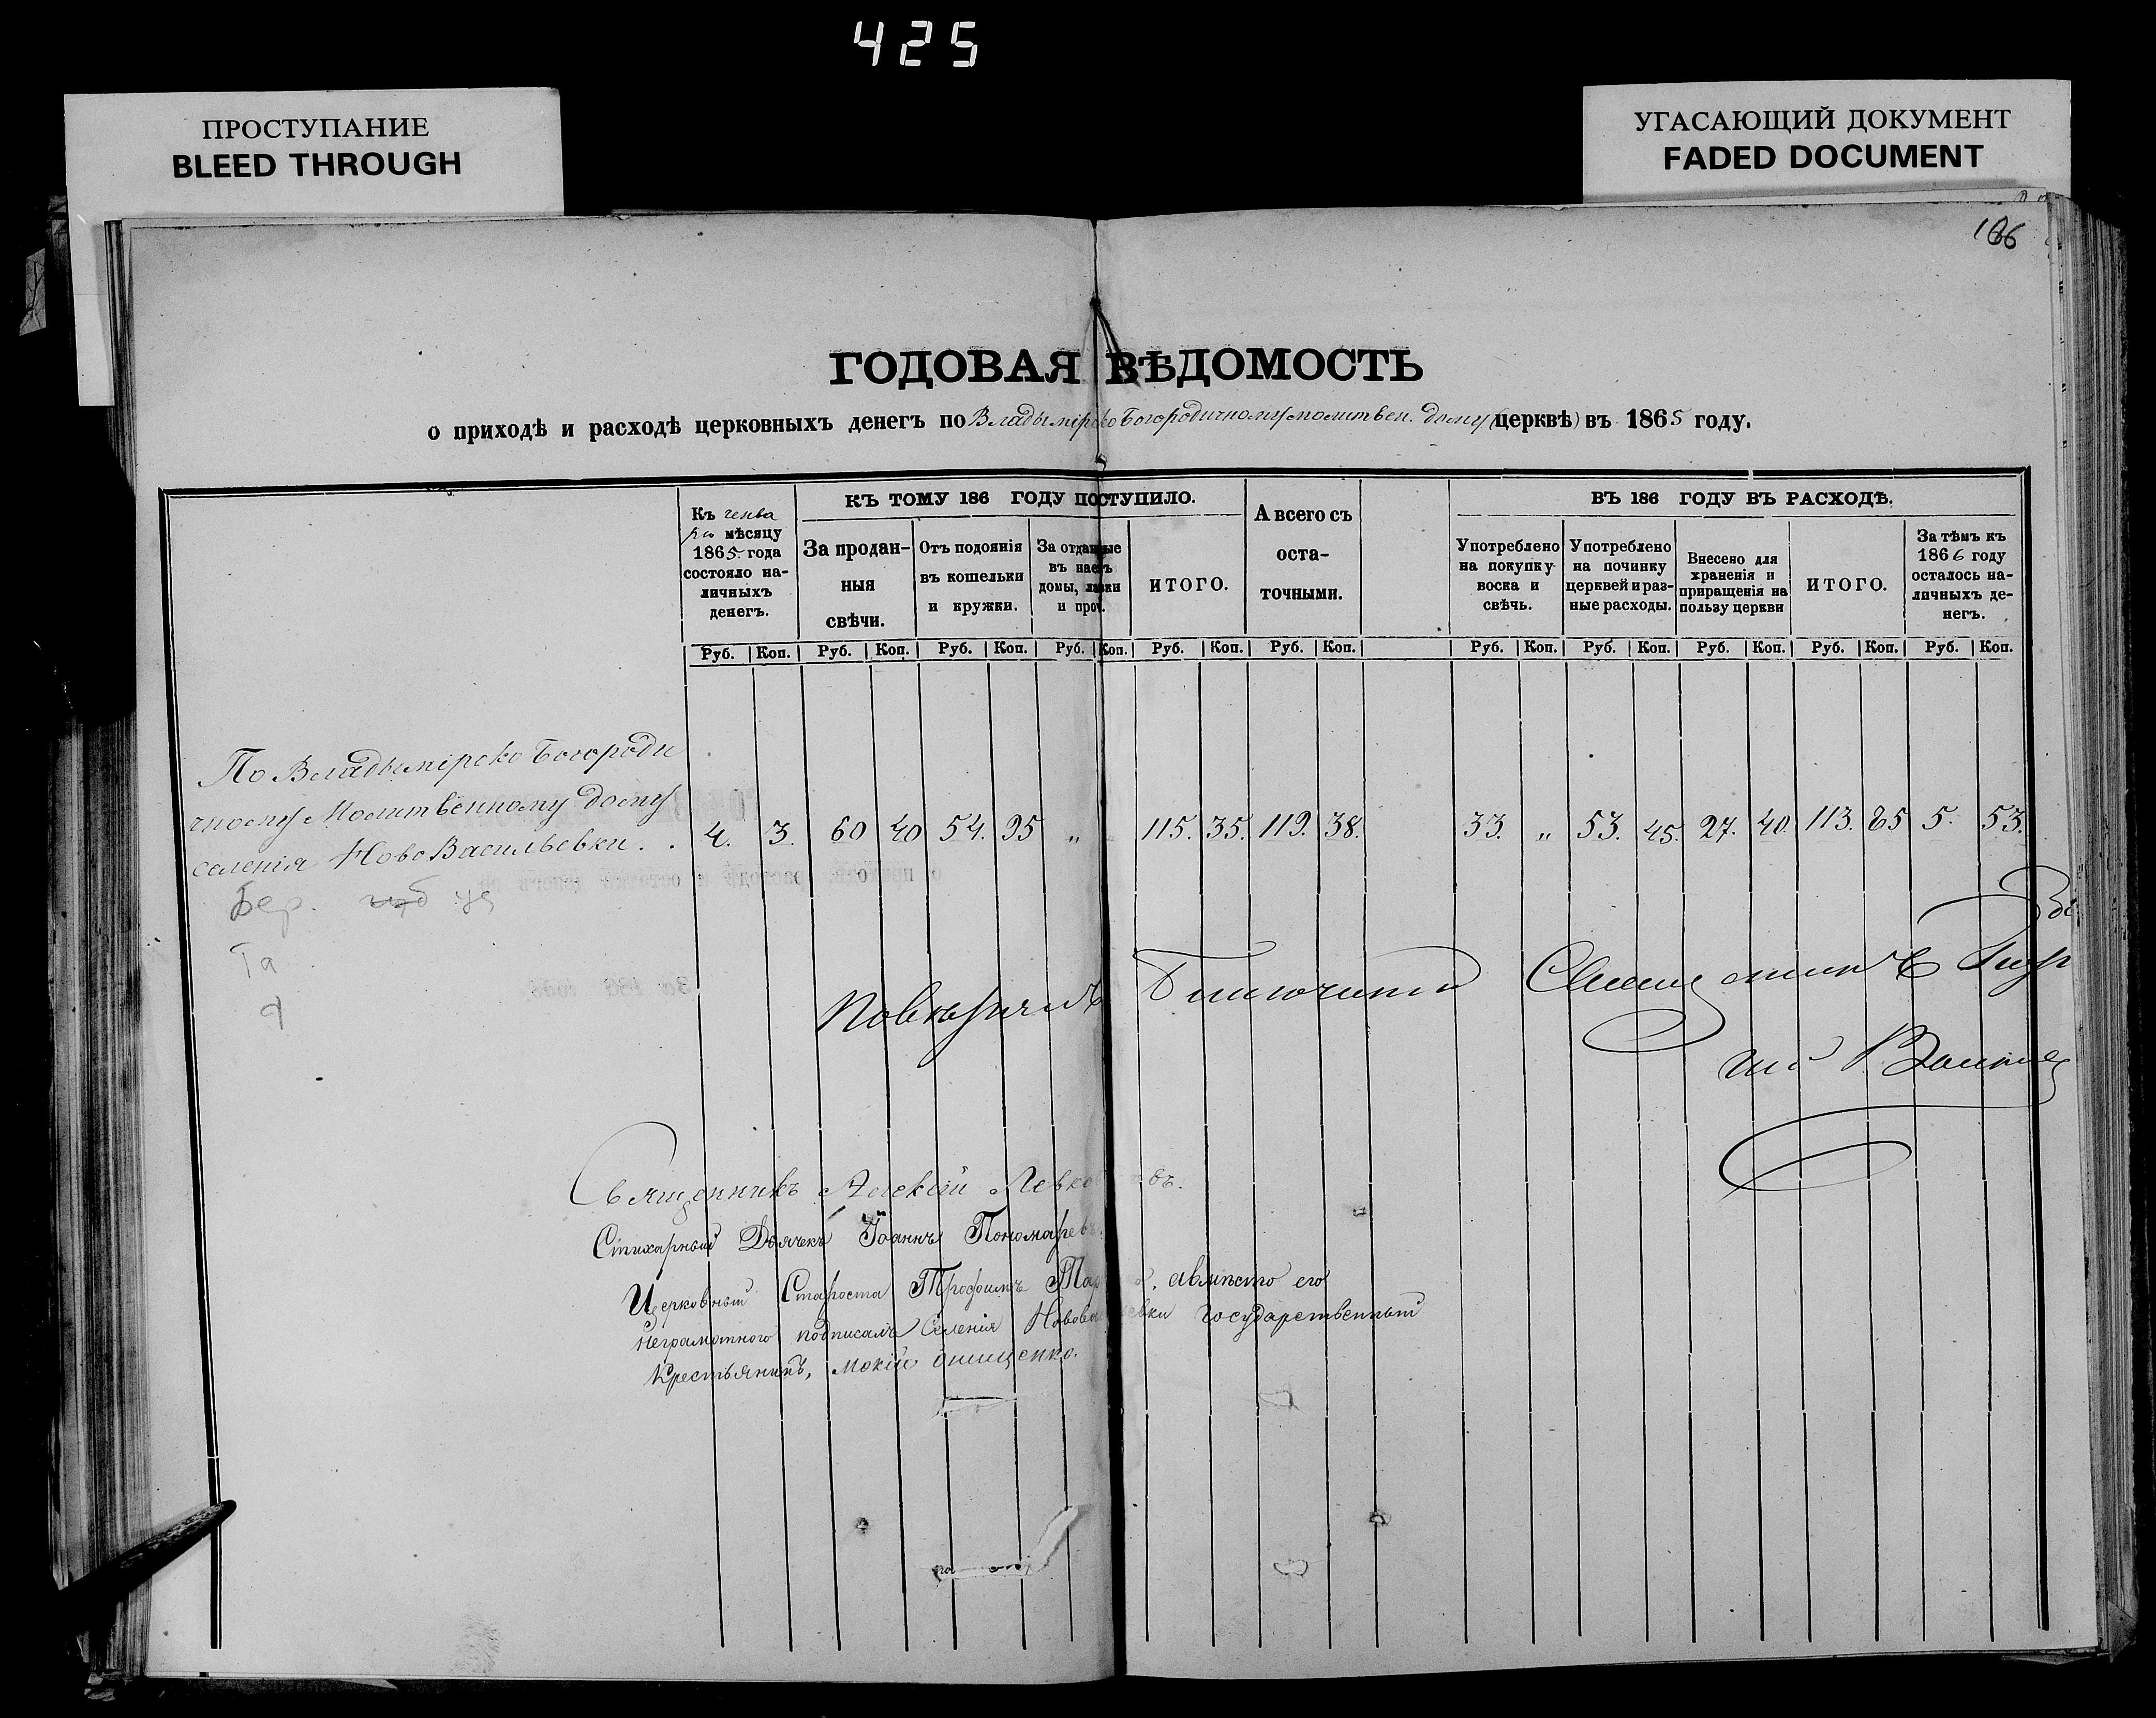 425
ПРОСТУПАНИЕ
BLEED THROUGH
УГАСАЮЩИЙ ДОКУМЕНТ
FADED DOCUMENT
166
ГОДОВАЯ ВѢДОМОСТЬ
о приходѣ и расходѣ церковныхъ денегъ по Владымірско Богородичному молитвен. дому (церквѣ) въ 1865 году.
Къ генва
рю мѣсяцу
1865 года
состояло на-
личныхъ
денегъ.
КЪ ТОМУ 186 ГОДУ ПОСТУПИЛО.
За продан-
ныя
свѣчи.
Отъ подоянія
въ кошельки
и кружки.
За отданные
въ наемъ
домы, лавки
и проч.
ИТОГО.
А всего съ
оста-
точными.
ВЪ 186 ГОДУ ВЪ РАСХОДѢ.
Употреблено
на покупку
воска и
свѣчь.
Употреблено
на починку
церквей и раз-
ные расходы.
Внесено для
храненія и
приращенія на
пользу церкви
ИТОГО.
За тѣмъ къ
1866 году
осталось на-
личныхъ де-
негъ.
Руб. Коп. Руб. Коп. Руб. Коп. Руб. Коп. Руб. Коп. Руб. Коп. Руб. Коп. Руб. Коп. Руб. Коп. Руб. Коп. Руб. Коп.
По Владымірско Богороди
чному Молитвенному дому
селенія Ново Васильевки. . 4. 3. 60 40 54. 95 „ 115. 35. 119. 38. 33. „ 53. 45. 27. 40. 113. 85 5. 53.
Бер.
Та
Повѣрялъ Благочинный Священникъ
Священникъ Алексій Левко въ.
Стихарный Дьячекъ Іоаннъ Пономаревъ.
Церковный Староста Трофимъ авмѣсто его
неграмотного подписалъ Селенія Нововасильевки государственный
Крестьянинъ, Мокій Онищенко.